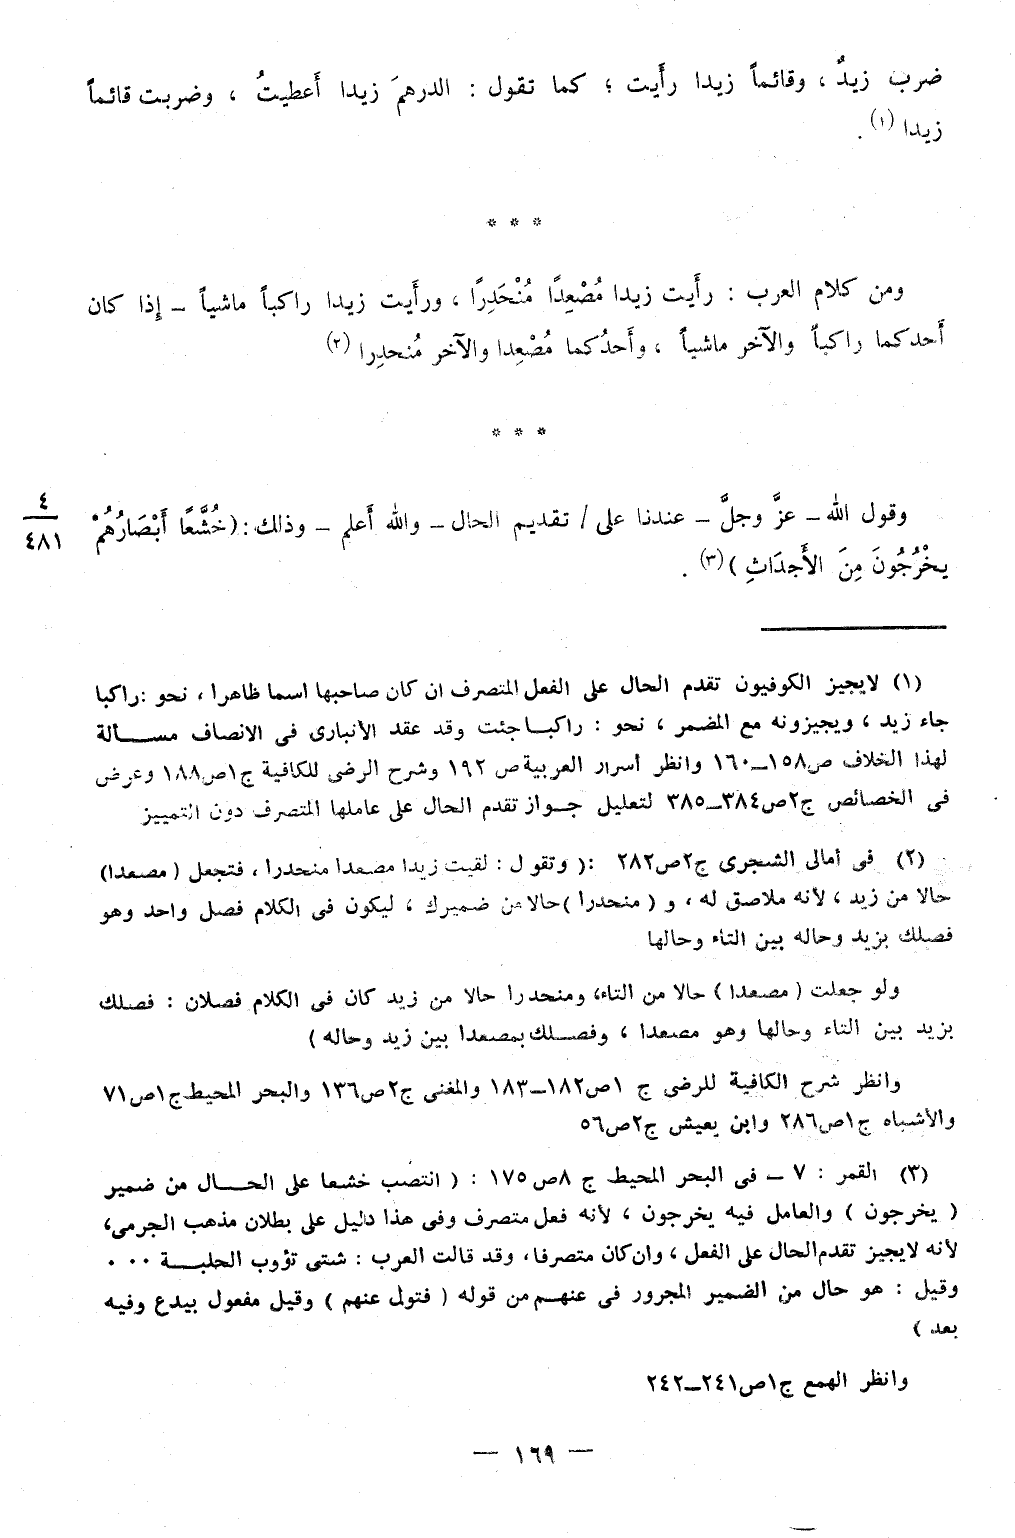 ضرب زيدٌ ، وقائماً زيدا رأَيت ؛ كما تقول : الدرهمَ زيدا أَعطيتُ ، وضربت قائماً
زيدا (١) .
* * *
ومن كلام العرب : رأَيت زيدا مُصْعِدًا مُنْحَدِرًا ، ورأَيت زيدا راكباً ماشياً ــ إِذا كان
أَحدكما راكباً والآخر ماشياً ، وأَحدُكما مُصْعِدا والآخر مُنحدِرا (٢)
* * *
وقول الله ــ عزَّ وجلَّ ــ عندنا على / تقديم الحال ــ والله أَعلم ــ وذلك : (خُشَّعًا أَبْصَارُهُمْ
٤
٤٨١
يخْرُجُونَ مِنَ الأَجدَاثِ )(٣) .
(١) لايجيز الكوفيون تقدم الحال على الفعل المتصرف ان كان صاحبها اسما ظاهرا ، نحو :راكبا
جاء زيد ، ويجيزونه مع المضمر ، نحو : راكبا جئت وقد عقد الأنبارى فى الانصاف مســألة
لهذا الخلاف ص١٥٨ــ١٦٠ وانظر أسرار العربية ص ١٩٢ وشرح الرضى للكافية ج١ص١٨٨ وعرض
فى الخصائص ج٢ص٣٨٤ــ٣٨٥ لتعليل جــواز تقدم الحال على عاملها المتصرف دون التمييز
(٢) فى أمالى الشجرى ج٢ص٢٨٢ :( وتقول : لقيت زيدا مصعدا منحدرا ، فتجعل (مصعدا)
حالا من زيد ، لأنه ملاصق له ، و ( منحدرا )حالا من ضميرك ، ليكون فى الكلام فصل واحد وهو
فصلك بزيد وحاله بين التاء وحالها
ولو جعلت ( مصعدا ) حالا من التاء، ومنحدرا حالا من زيد كان فى الكلام فصلان : فصلك
بزيد بين التاء وحالها وهو مصعدا ، وفصــلك بمصعدا بين زيد وحاله )
وانظر شرح الكافية للرضى ج ١ص١٨٢ــ١٨٣ والمغنى ج٢ص١٣٦ والبحر المحيط ج١ص٧١
والأشباه ج١ص٢٨٦ وابن يعيش ج٢ص٥٦
(٣) القمر : ٧ ــ فى البحر المحيط ج ٨ص١٧٥ : ( انتصب خشعا على الحــال من ضمير
( يخرجون ) والعامل فيه يخرجون ، لأنه فعل متصرف وفى هذا دليل على بطلان مذهب الجرمى،
لأنه لايجيز تقدم الحال على الفعل ، وان كان متصرفا، وقد قالت العرب : شتى تؤوب الحلبــة ٠٠٠
وقيل : هو حال من الضمير المجرور فى عنهــم من قوله ( فتول عنهم ) وقيل مفعول بيدع وفيه
بعد )
وانظر الهمع ج١ص٢٤١ــ٢٤٢
— ١٦٩ —